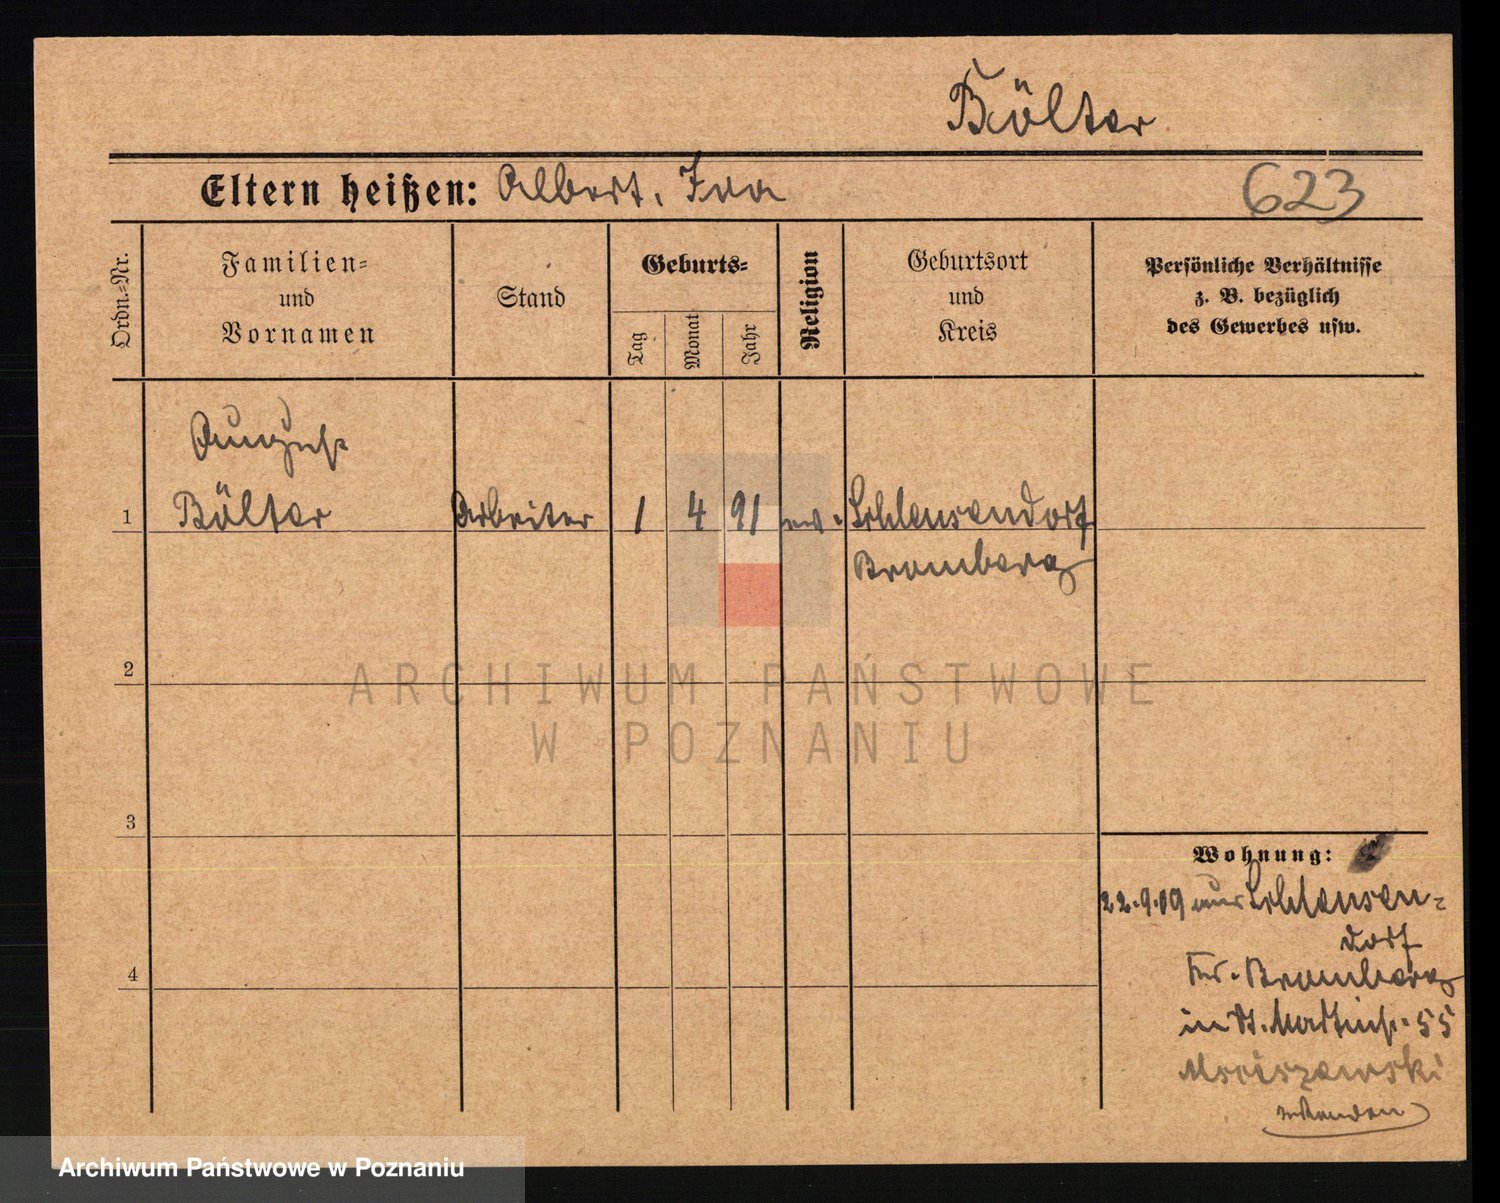 Bölter
Eltern heißen: Albert, Ida
623
Ordn.-Nr.
Familien-
und
Vornamen
Stand
Geburts-
Tag
Monat
Jahr
Religion
Geburtsort
und
Kreis
Persönliche Verhältnisse
z. B. bezüglich
des Gewerbes usw.
August
1 Bölter Arbeiter 1 4 91 ev. Schleusendorf
Bromberg
2
3
4
Wohnung:
22.9.09 aus Schleusen-
dorf
Kr. Bromberg
in St. Martinst. 55
ARCHIWUM PAŃSTWOWE
W POZNANIU
Archiwum Państwowe w Poznaniu